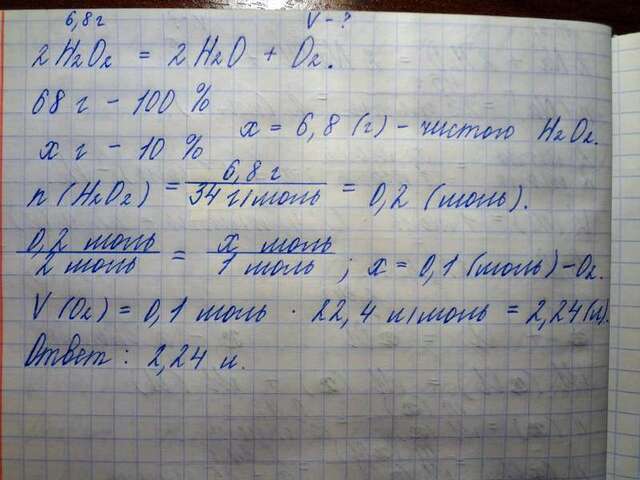 6,8 г V - ?
2 H2O2 = 2 H2O + O2.
68 г - 100 %
x г - 10 % x = 6,8 (г) - чистого H2O2.
n (H2O2) = 6,8 г / 34 г/моль = 0,2 (моль).
0,2 моль / 2 моль = x моль / 1 моль ; x = 0,1 (моль) - O2.
V (O2) = 0,1 моль · 22,4 л/моль = 2,24 (л).
Ответ : 2,24 л.